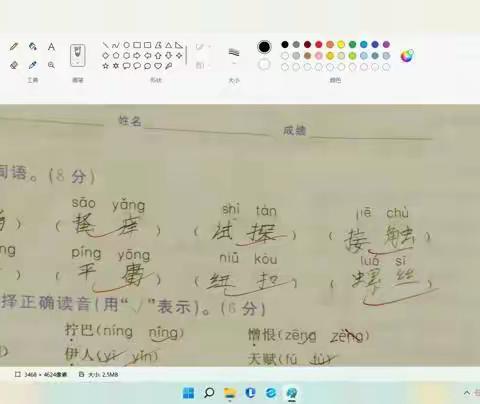 工具 画笔 形状 大小 颜色
姓名 成绩
词语。(8分)
sāo yǎng shì tàn jiē chù
) (搔痒) (试探) (接触)
ng píng yōng niǔ kòu luó sī
) (平庸) (纽扣) (螺丝)
择正确读音(用“√”表示)。(6分)
拧巴(níng nǐng) 憎恨(zēng zèng)
伊人(yī yīn) 天赋(fú fù)
3468 × 4624像素 大小: 2.5MB